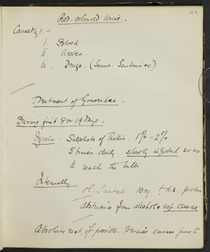 Red coloured Urine.
Causes:-
I. Blood
II. Urates
III. Drugs. (Senna. Santonin &c)
Treatment of Gonorrhoea.
During first 9 or 10 days.
Injection - Sulphate of 1% - 2%
5 times daily slowly injected so as
to reach the bulb
Internally
Ol. Santal 10 m t.d.s.
Abstinence from alcohol &
Absolute rest if possible.